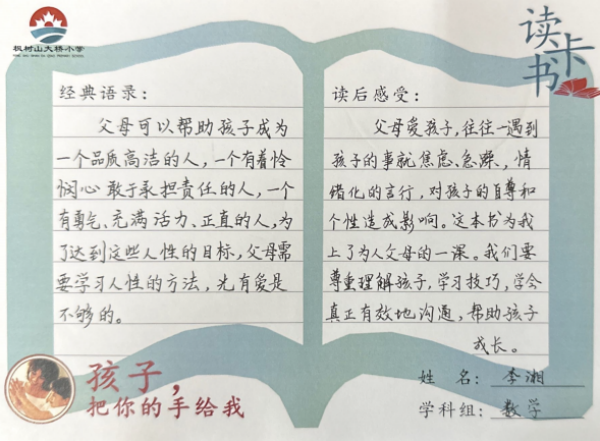 枫树山大桥小学
读书卡
经典语录：
父母可以帮助孩子成为
一个品质高洁的人，一个有着怜
悯心敢于承担责任的人，一个
有勇气、充满活力、正直的人，为
了达到这些人性的目标，父母需
要学习人性的方法，光有爱是
不够的。
读后感受：
父母爱孩子，往往一遇到
孩子的事就焦虑、急躁，情
绪化的言行，对孩子的自尊和
个性造成影响。这本书为我
上了为人父母的一课。我们要
尊重理解孩子，学习技巧，学会
真正有效地沟通，帮助孩子
成长。
孩子，
把你的手给我
姓 名：李湘
学科组：数学